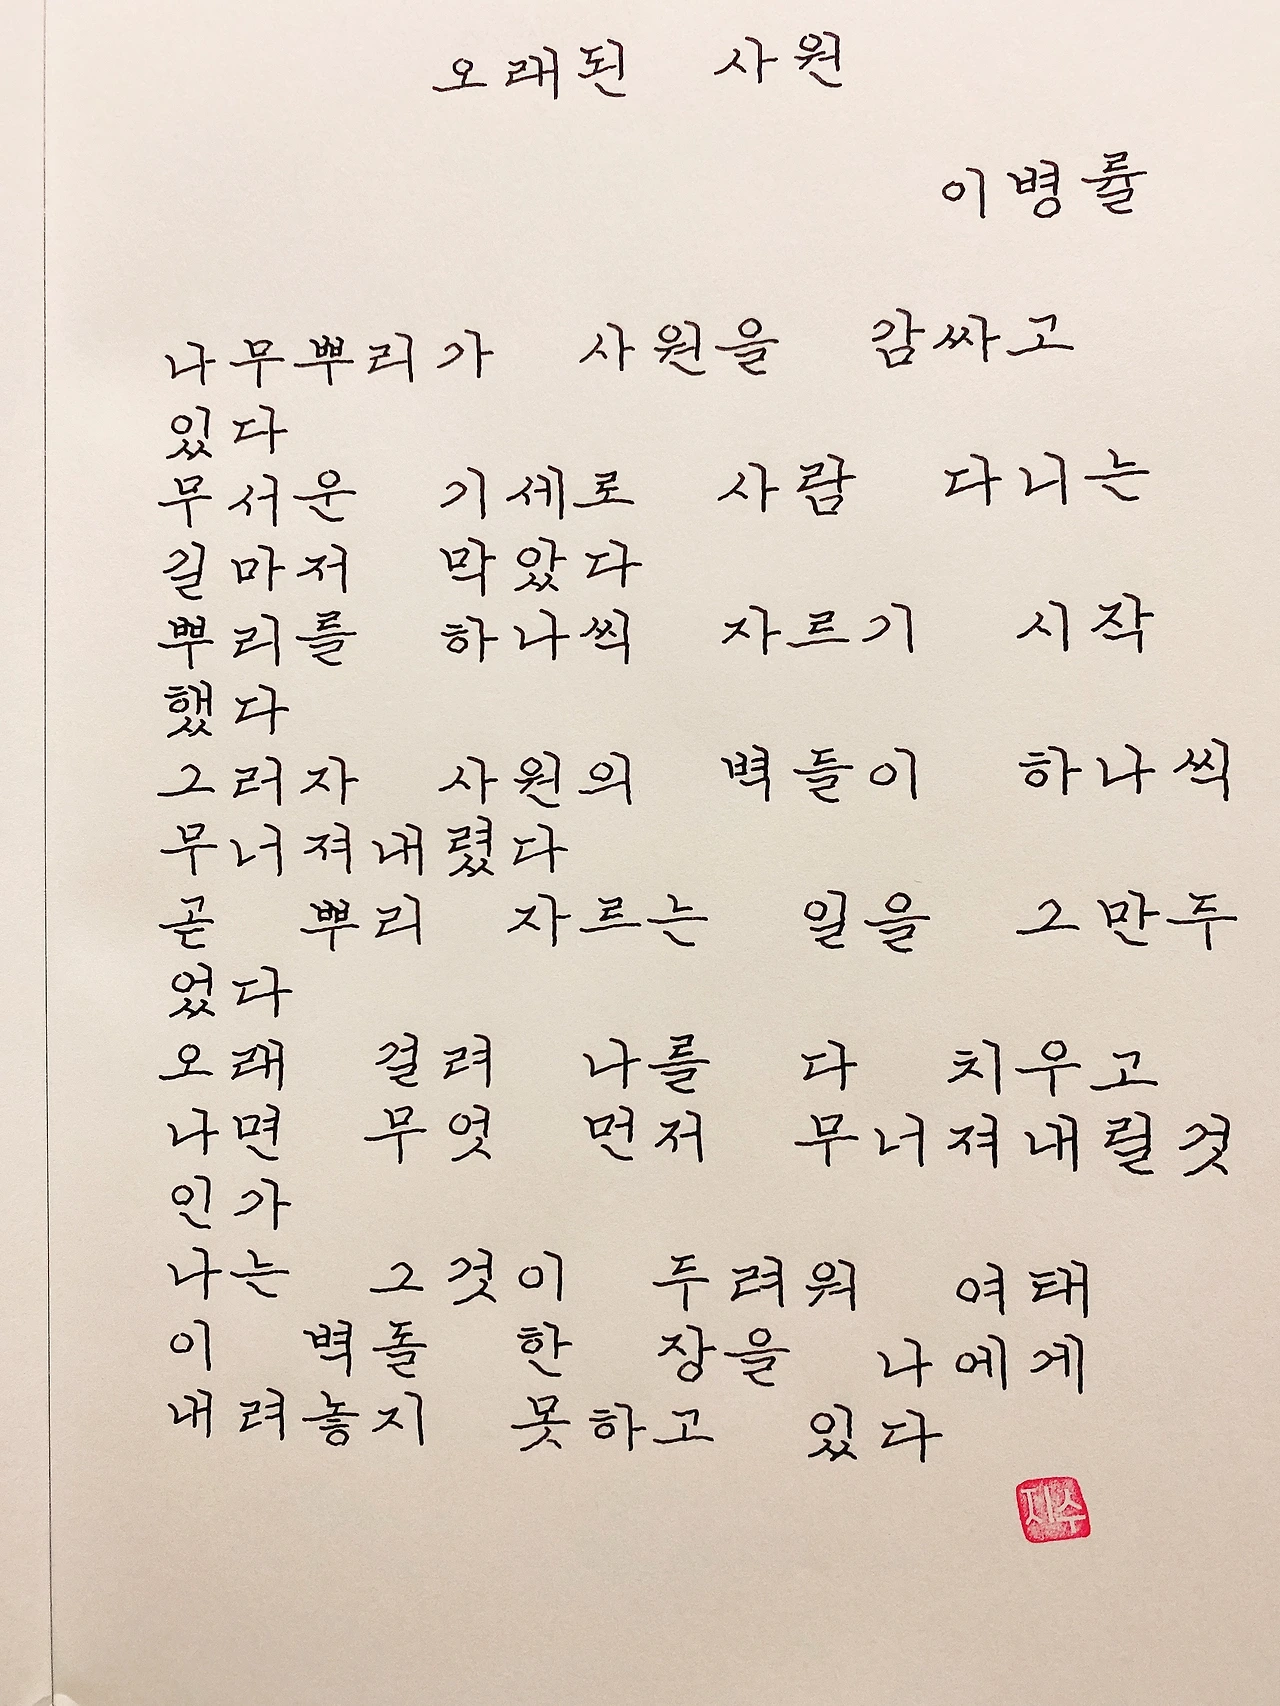 오래된 사원
이병률
나무뿌리가 사원을 감싸고
있다
무서운 기세로 사람 다니는
길마저 막았다
뿌리를 하나씩 자르기 시작
했다
그러자 사원의 벽들이 하나씩
무너져내렸다
곧 뿌리 자르는 일을 그만두
었다
오래 걸려 나를 다 치우고
나면 무엇 먼저 무너져내릴것
인가
나는 그것이 두려워 여태
이 벽돌 한 장을 나에게
내려놓지 못하고 있다
지수